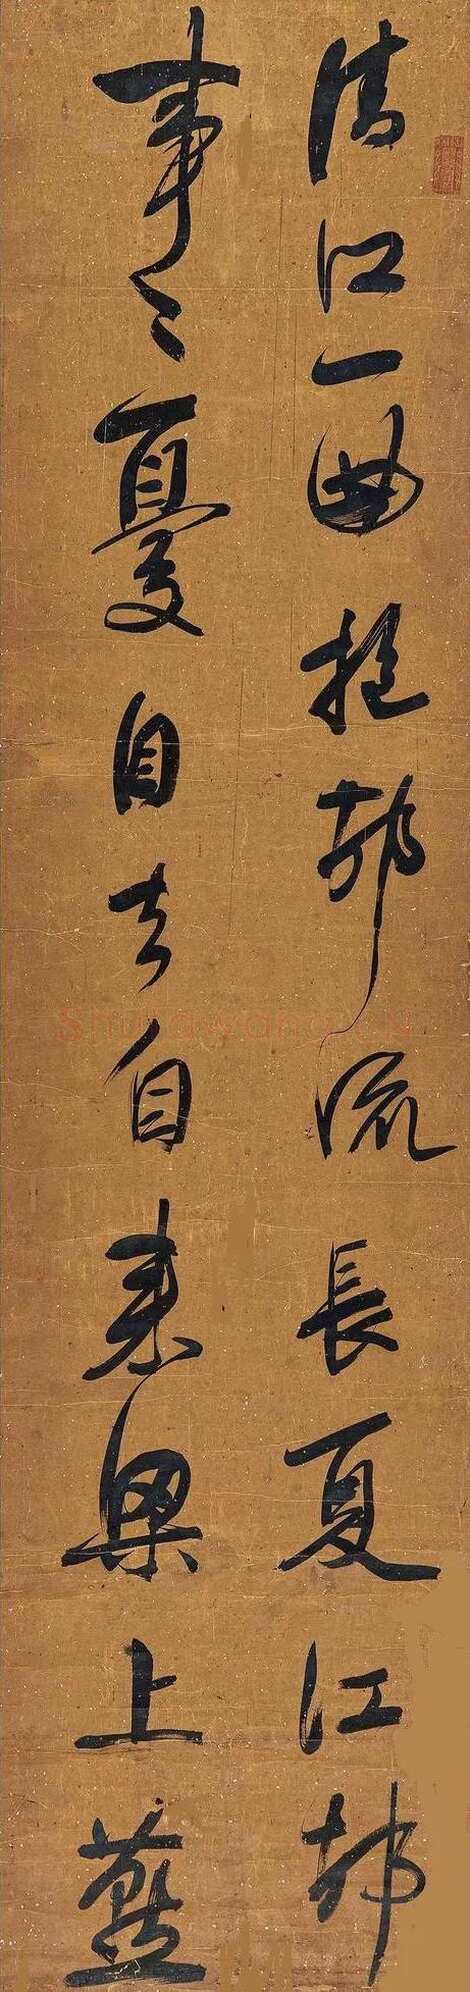 清江一曲抱邨流長夏江邨
事〻憂自去自來梁上燕